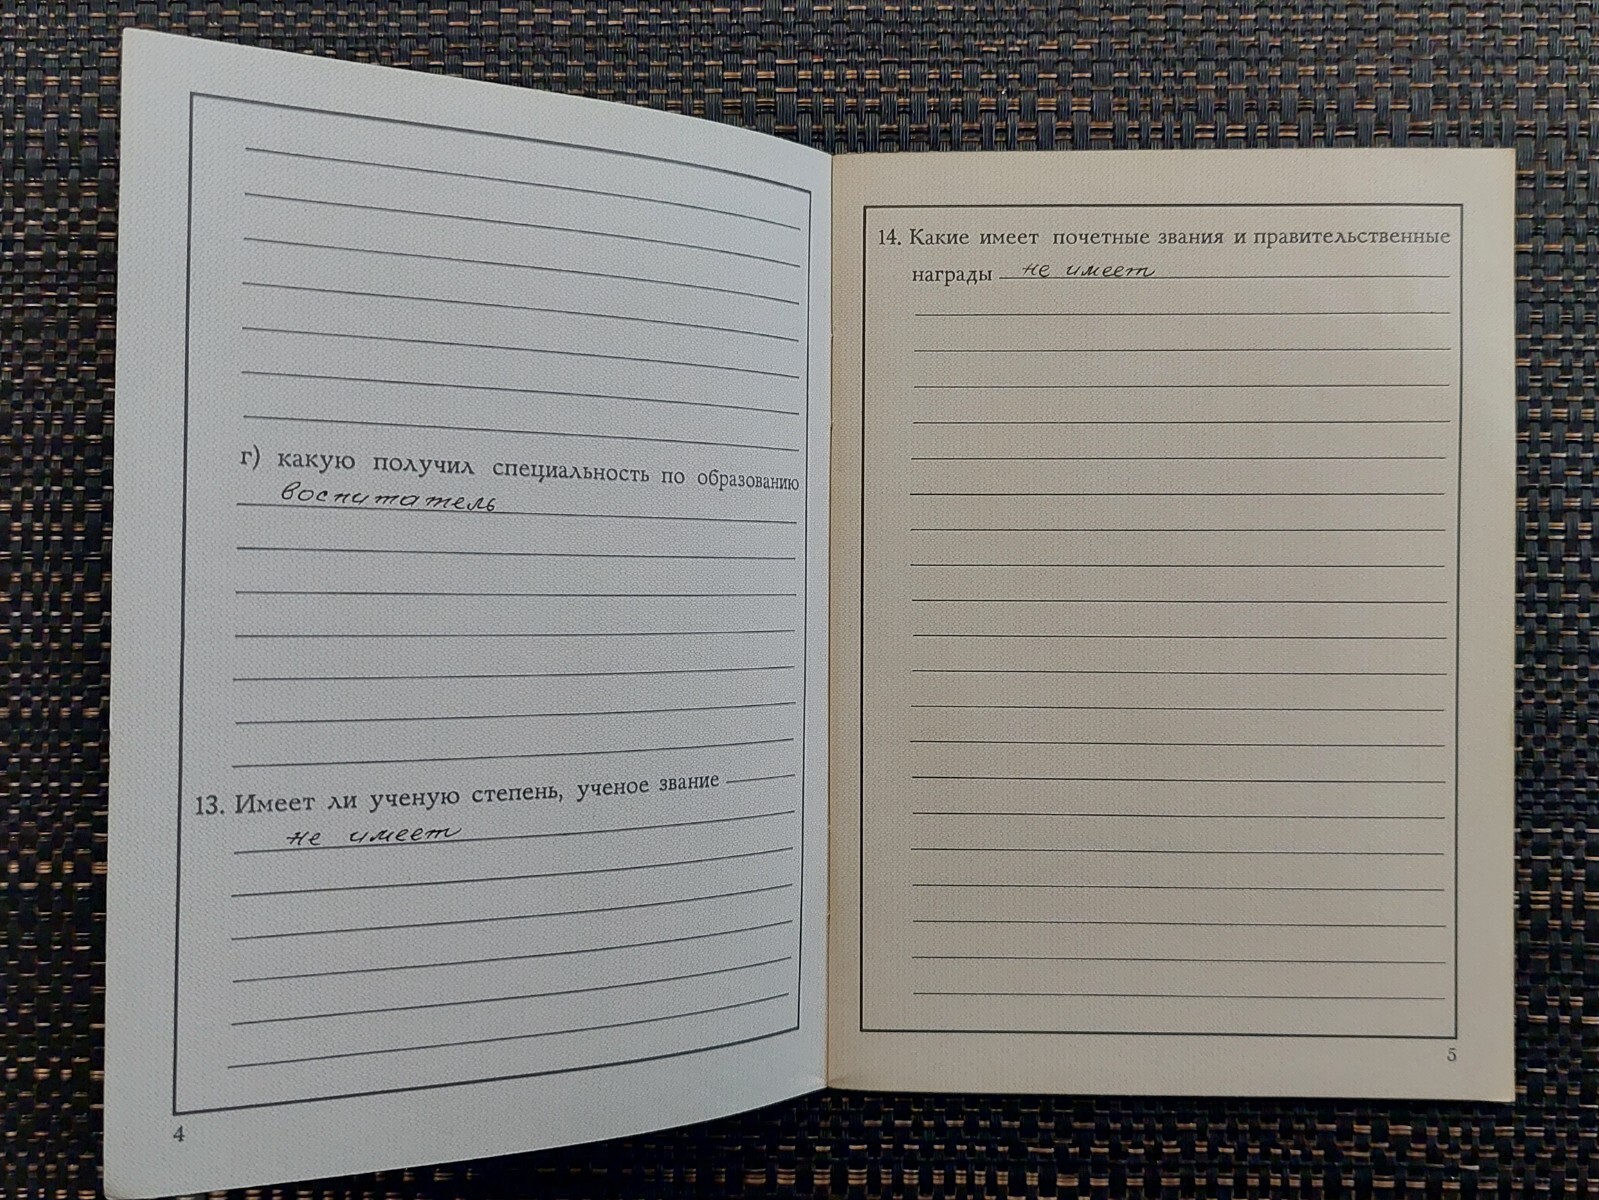 г) какую получил специальность по образованию
воспитатель
13. Имеет ли ученую степень, ученое звание
не имеет
4
14. Какие имеет почетные звания и правительственные
награды не имеет
5